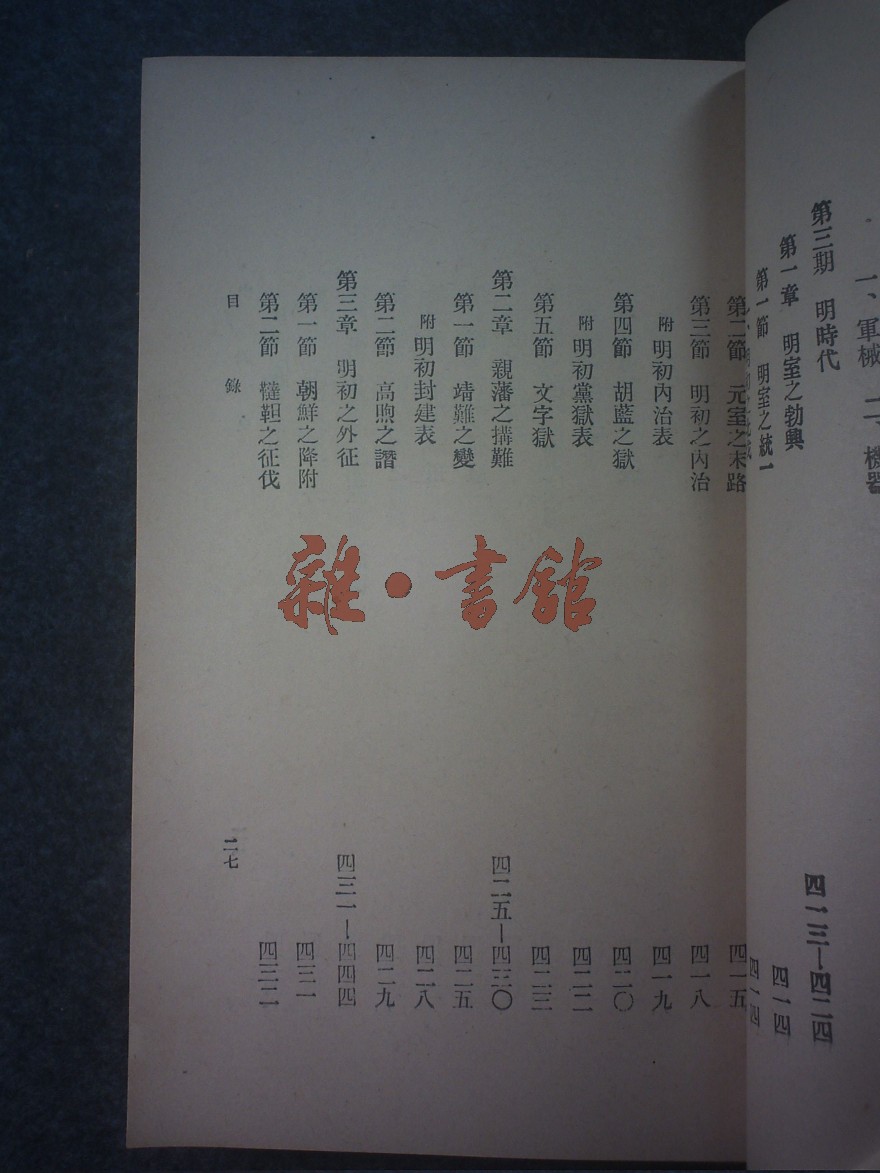 一、軍械 二、機器
第三期 明時代
第一章 明室之勃興 四一三—四二四
第一節 明室之統一 四一四
四一四
第二節 元室之末路 四一五
第三節 明初之內治 四一八
附 明初內治表 四一九
第四節 胡藍之獄 四二〇
附 明初黨獄表 四二二
第五節 文字獄 四二三
第二章 親藩之搆難 四二五—四三〇
第一節 靖難之變 四二五
附 明初封建表 四二八
第二節 高煦之譖 四二九
第三章 明初之外征 四三一—四四四
第一節 朝鮮之降附 四三一
第二節 韃靼之征伐 四三二
目錄 二七
雜·書館